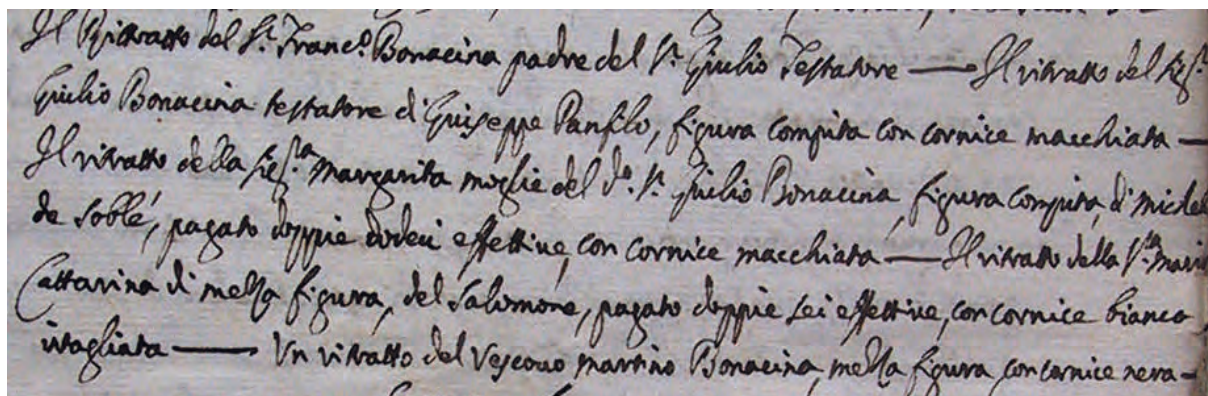 Il Ritratto del S.r Franc.o Bonacina padre del S.r Giulio Testatore — Il ritratto del Sig.r
Giulio Bonacina testatore di Giuseppe Panfilo, figura compita con cornice macchiata —
Il ritratto della Sig.ra Margarita moglie del d.o S.r Giulio Bonacina, figura compita, di Michel
de Soblé, pagato doppie dodeci effettive, con cornice macchiata — Il ritratto della S.ra Maria
Cattarina di mezza figura, del Salomone, pagato doppie sei effettive, con cornice bianca,
intagliata — Un ritratto del Vescovo Martino Bonacina, mezza figura con cornice nera —